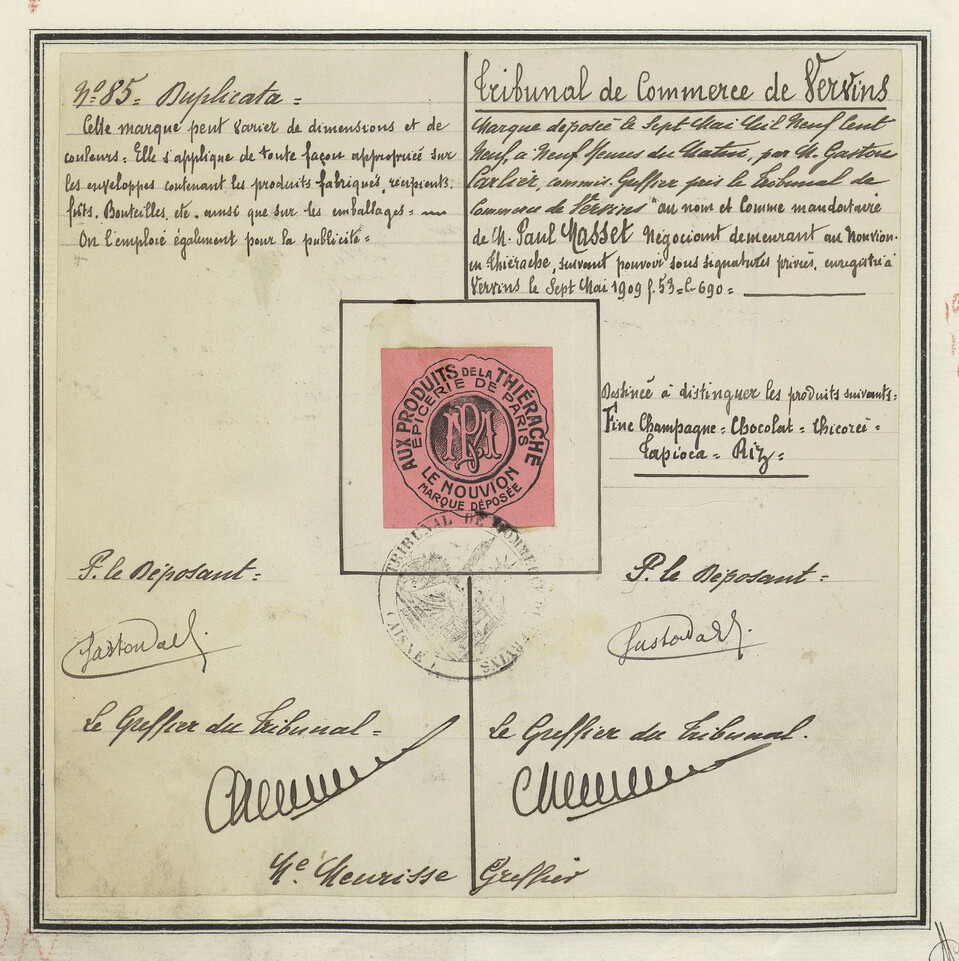 Nº 85 = Duplicata =
Cette marque peut varier de dimensions et de
couleurs = Elle s'applique de toute façon appropriée sur
les enveloppes contenant les produits fabriqués, récipients,
fûts. Bouteilles, etc. ainsi que sur les emballages =
On l'emploie également pour la publicité =
Tribunal de Commerce de Vervins
Marque déposée le Sept Mai Mil Neuf Cent
Neuf, à Neuf Heures du Matin, par M. Gaston
Carlier, commis. Greffier près le Tribunal de
Commerce de Vervins "au nom et comme mandataire
de M. Paul Masset Négociant demeurant au Nouvion-
en Thiérache, suivant pouvoir sous signatures privées, enregistré à
Vervins le Sept Mai 1909 f. 53 = c. 690 =
AUX PRODUITS DE LA THIÉRACHE
ÉPICERIE DE PARIS
PM
LE NOUVION
MARQUE DÉPOSÉE
Destinée à distinguer les produits suivants =
Fine Champagne = Chocolat = Chicorée =
Tapioca = Riz =
TRIBUNAL DE COMMERCE DE VERVINS
(AISNE)
P. le Déposant =
P. le Déposant =
Le Greffier du Tribunal =
Le Greffier du Tribunal.
Me Meurisse Greffier